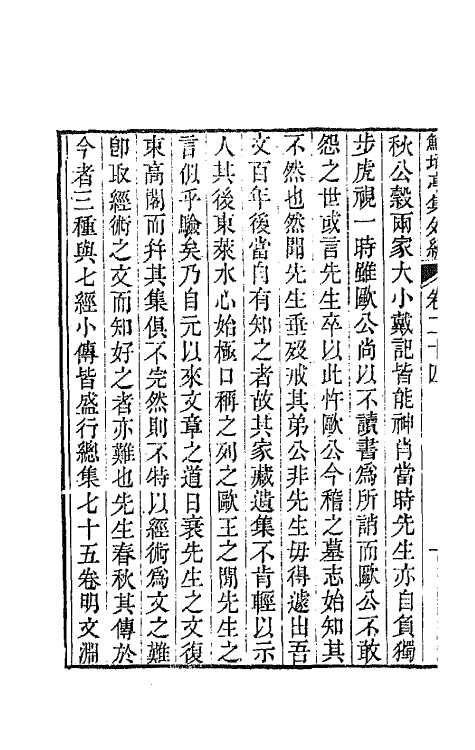 鮚埼亭集外編 卷二十四
秋公縠兩家大小戴記皆能神肖當時先生亦自負獨
步虎視一時雖歐公尚以不讀書爲所誚而歐公不敢
怨之世或言先生卒以此忤歐公今稽之墓志始知其
不然也然聞先生垂歿戒其弟公非先生毋得遽出吾
文百年後當自有知之者故其家藏遺集不肯輕以示
人其後東萊水心始極口稱之列之歐王之閒先生之
言似乎驗矣乃自元以來文章之道日衰先生之文復
東高閣而幷其集俱不完然則不特以經術爲文之難
卽取經術之文而知好之者亦難也先生春秋其傳於
今者三種與七經小傳皆盛行總集七十五卷明文淵